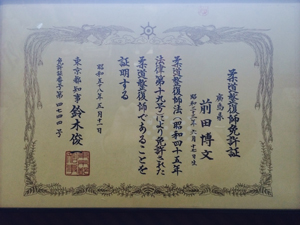 柔道整復師免許証
廣島県
前田博文
昭和三十三年六月十七年生
柔道整復師法(昭和四十五年
法律第十九号)により免許された
柔道整復師であることを
証明する
昭和五十八年五月十一日
東京都知事 鈴木俊一
免許証番号第四七四四号